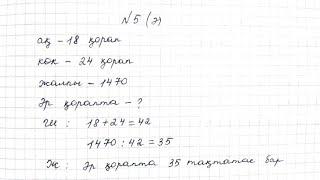 №5 (ә)
ақ - 18 қорап
көк - 24 қорап
жалпы - 1470
Әр қорапта - ?
Ш : 18 + 24 = 42
1470 : 42 = 35
Ж : Әр қорапта 35 тақтатас бар